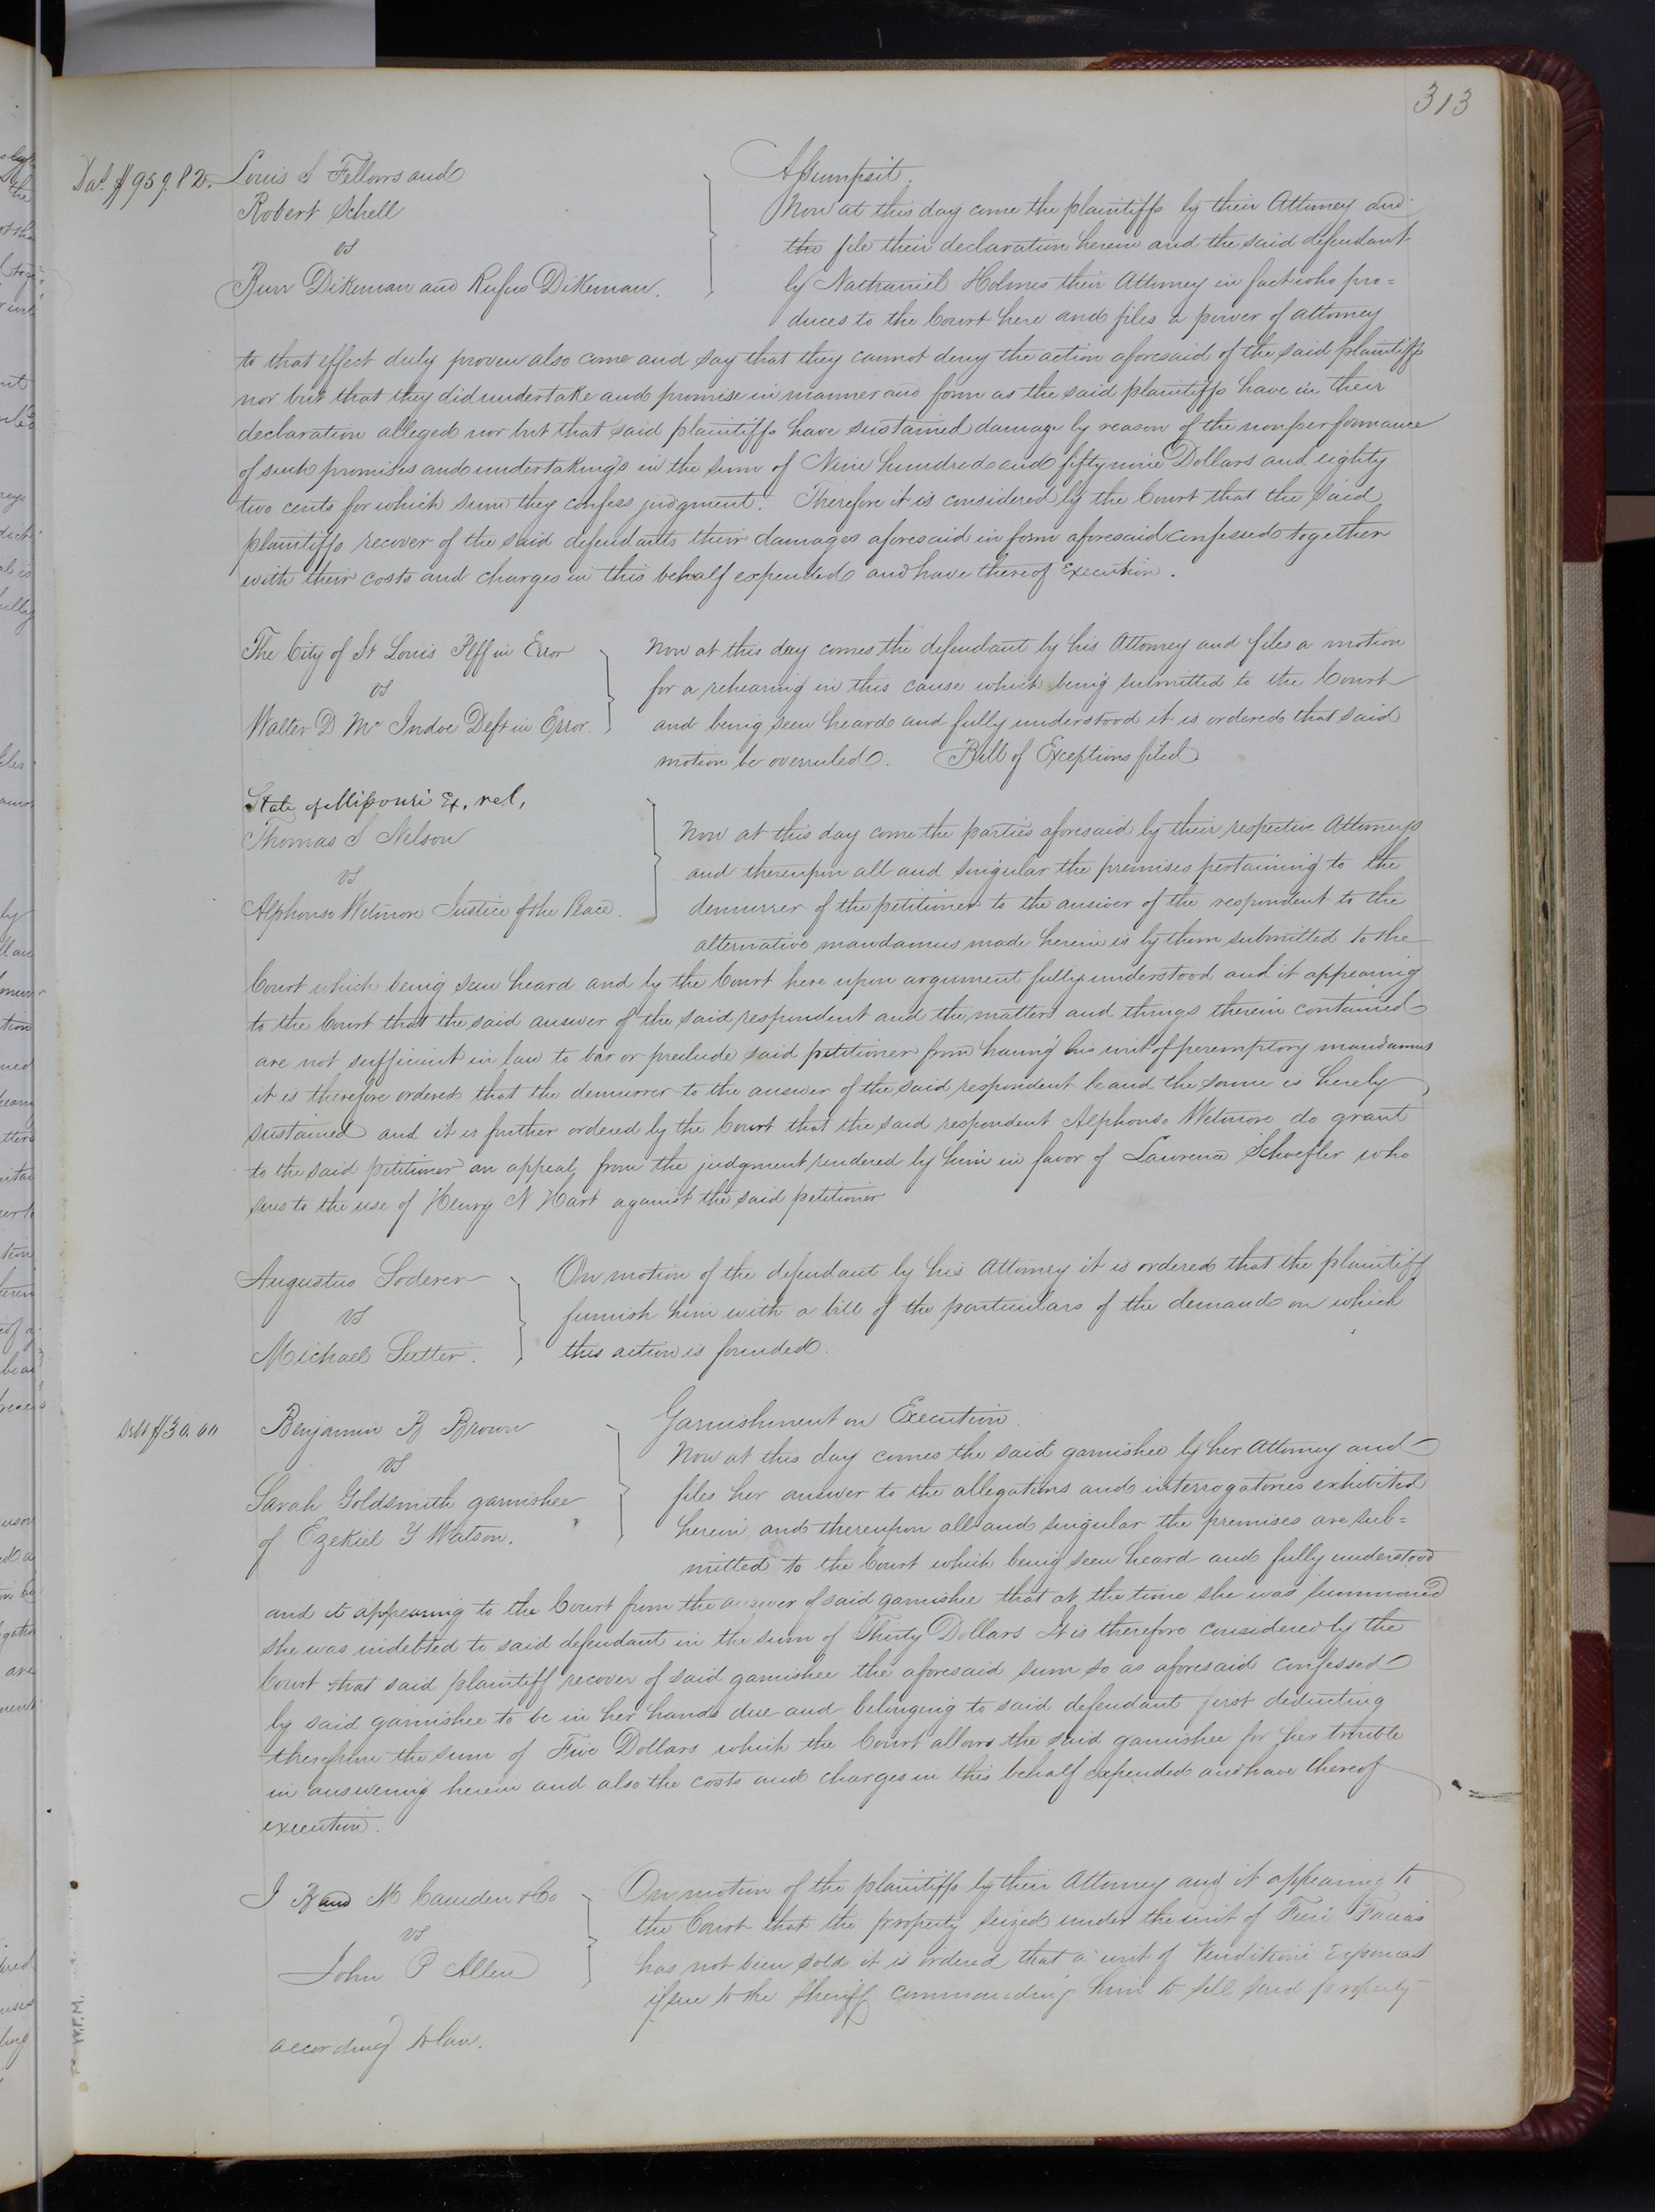 313
Dat. $959.82. Louis S Fellows and
Robert Schell
vs
Burr Dikeman and Rufus Dikeman.
Assumpsit.
Now at this day come the plaintiffs by their Attorney and
the file their declaration herein and the said defendant
by Nathaniel Holmes their Attorney in fact who pro=
duces to the Court here and files a power of attorney
to that effect duly proven also come and say that they cannot deny the action aforesaid of the said plaintiffs
nor but that they did undertake and promise in manner and form as the said plaintiffs have in their
declaration alleged nor but that said plaintiffs have sustained damage by reason of the nonperformance
of such promises and undertakings in the sum of Nine hundred and fifty nine Dollars and eighty
two cents for which sum they confess judgment. Therefore it is considered by the Court that the said
plaintiffs recover of the said defendants their damages aforesaid in form aforesaid confessed together
with their costs and charges in this behalf expended and have thereof Execution.
The City of St Louis Plff in Error
vs
Walter D Mc Indoe Deft in Error.
Now at this day comes the defendant by his Attorney and files a motion
for a rehearing in this cause which being submitted to the Court
and being seen heard and fully understood it is ordered that said
motion be overruled. Bill of Exceptions filed
State of Missouri Ex. rel,
Thomas S Nelson
vs
Alphonso Wetmore Justice of the Peace.
Now at this day come the parties aforesaid by their respective Attorneys
and thereupon all and singular the premises pertaining to the
demurrer of the petitioner to the answer of the respondent to the
alternative mandamus made herein is by them submitted to the
Court which being seen heard and by the Court here upon argument fully understood and it appearing
to the Court that the said answer of the said respondent and the matters and things therein contained
are not sufficient in law to bar or preclude said petitioner from having his writ of peremptory mandamus
it is therefore ordered that the demurrer to the answer of the said respondent be and the same is hereby
sustained and it is further ordered by the Court that the said respondent Alphonso Wetmore do grant
to the said petitioner an appeal from the judgment rendered by him in favor of Lawrence Schoefler who
sues to the use of Henry N Hart against the said petitioner
Augustus Soderer
vs
Michael Sutter.
On motion of the defendant by his Attorney it is ordered that the plaintiff
furnish him with a bill of the particulars of the demand on which
this action is founded.
Debt $30.00 Benjamin B Brown
vs
Sarah Goldsmith garnishee
of Ezekiel Y Watson.
Garnishment on Execution.
Now at this day comes the said garnishee by her Attorney and
files her answer to the allegations and interrogatories exhibited
herein and thereupon all and singular the premises are sub=
mitted to the Court which being seen heard and fully understood
and it appearing to the Court from the answer of said garnishee that at the time she was summoned
she was indebted to said defendant in the sum of Thirty Dollars It is therefore considered by the
Court that said plaintiff recover of said garnishee the aforesaid sum so as aforesaid confessed
by said garnishee to be in her hands due and belonging to said defendant first deducting
therefrom the sum of Five Dollars which the Court allows the said garnishee for her trouble
in answering herein and also the costs and charges in this behalf expended and have thereof
execution.
J B and M Camden & Co
vs
John P Allen
On motion of the plaintiffs by their Attorney and it appearing to
the Court that the property seized under the writ of Fieri Facias
has not been sold it is ordered that a writ of Venditioni Exponas
issue to the Sheriff commanding him to sell said property
according to law.